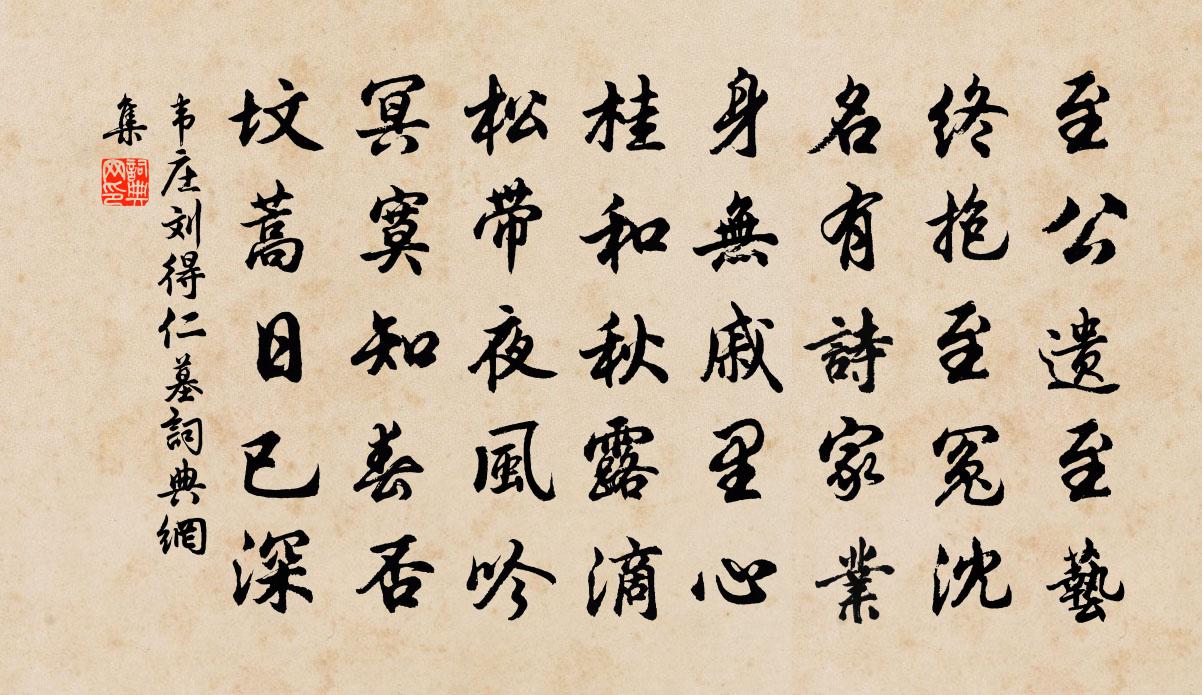 至公遗至藝
终抱至冤沈
名有詩家業
身無戚里心
桂和秋露滴
松带夜風吟
冥寞知春否
坟蒿日已深
韦庄刘得仁墓詞典網
集
詞典
网印